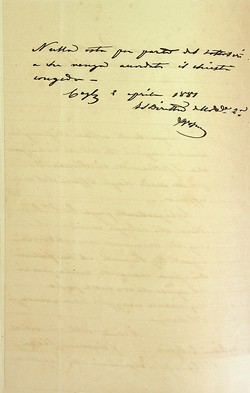 Nulla osta per parte del sottoscri
a che venga accordato il chiesto
congedo –
Cagl. 2 aprile 1881
Il Direttore